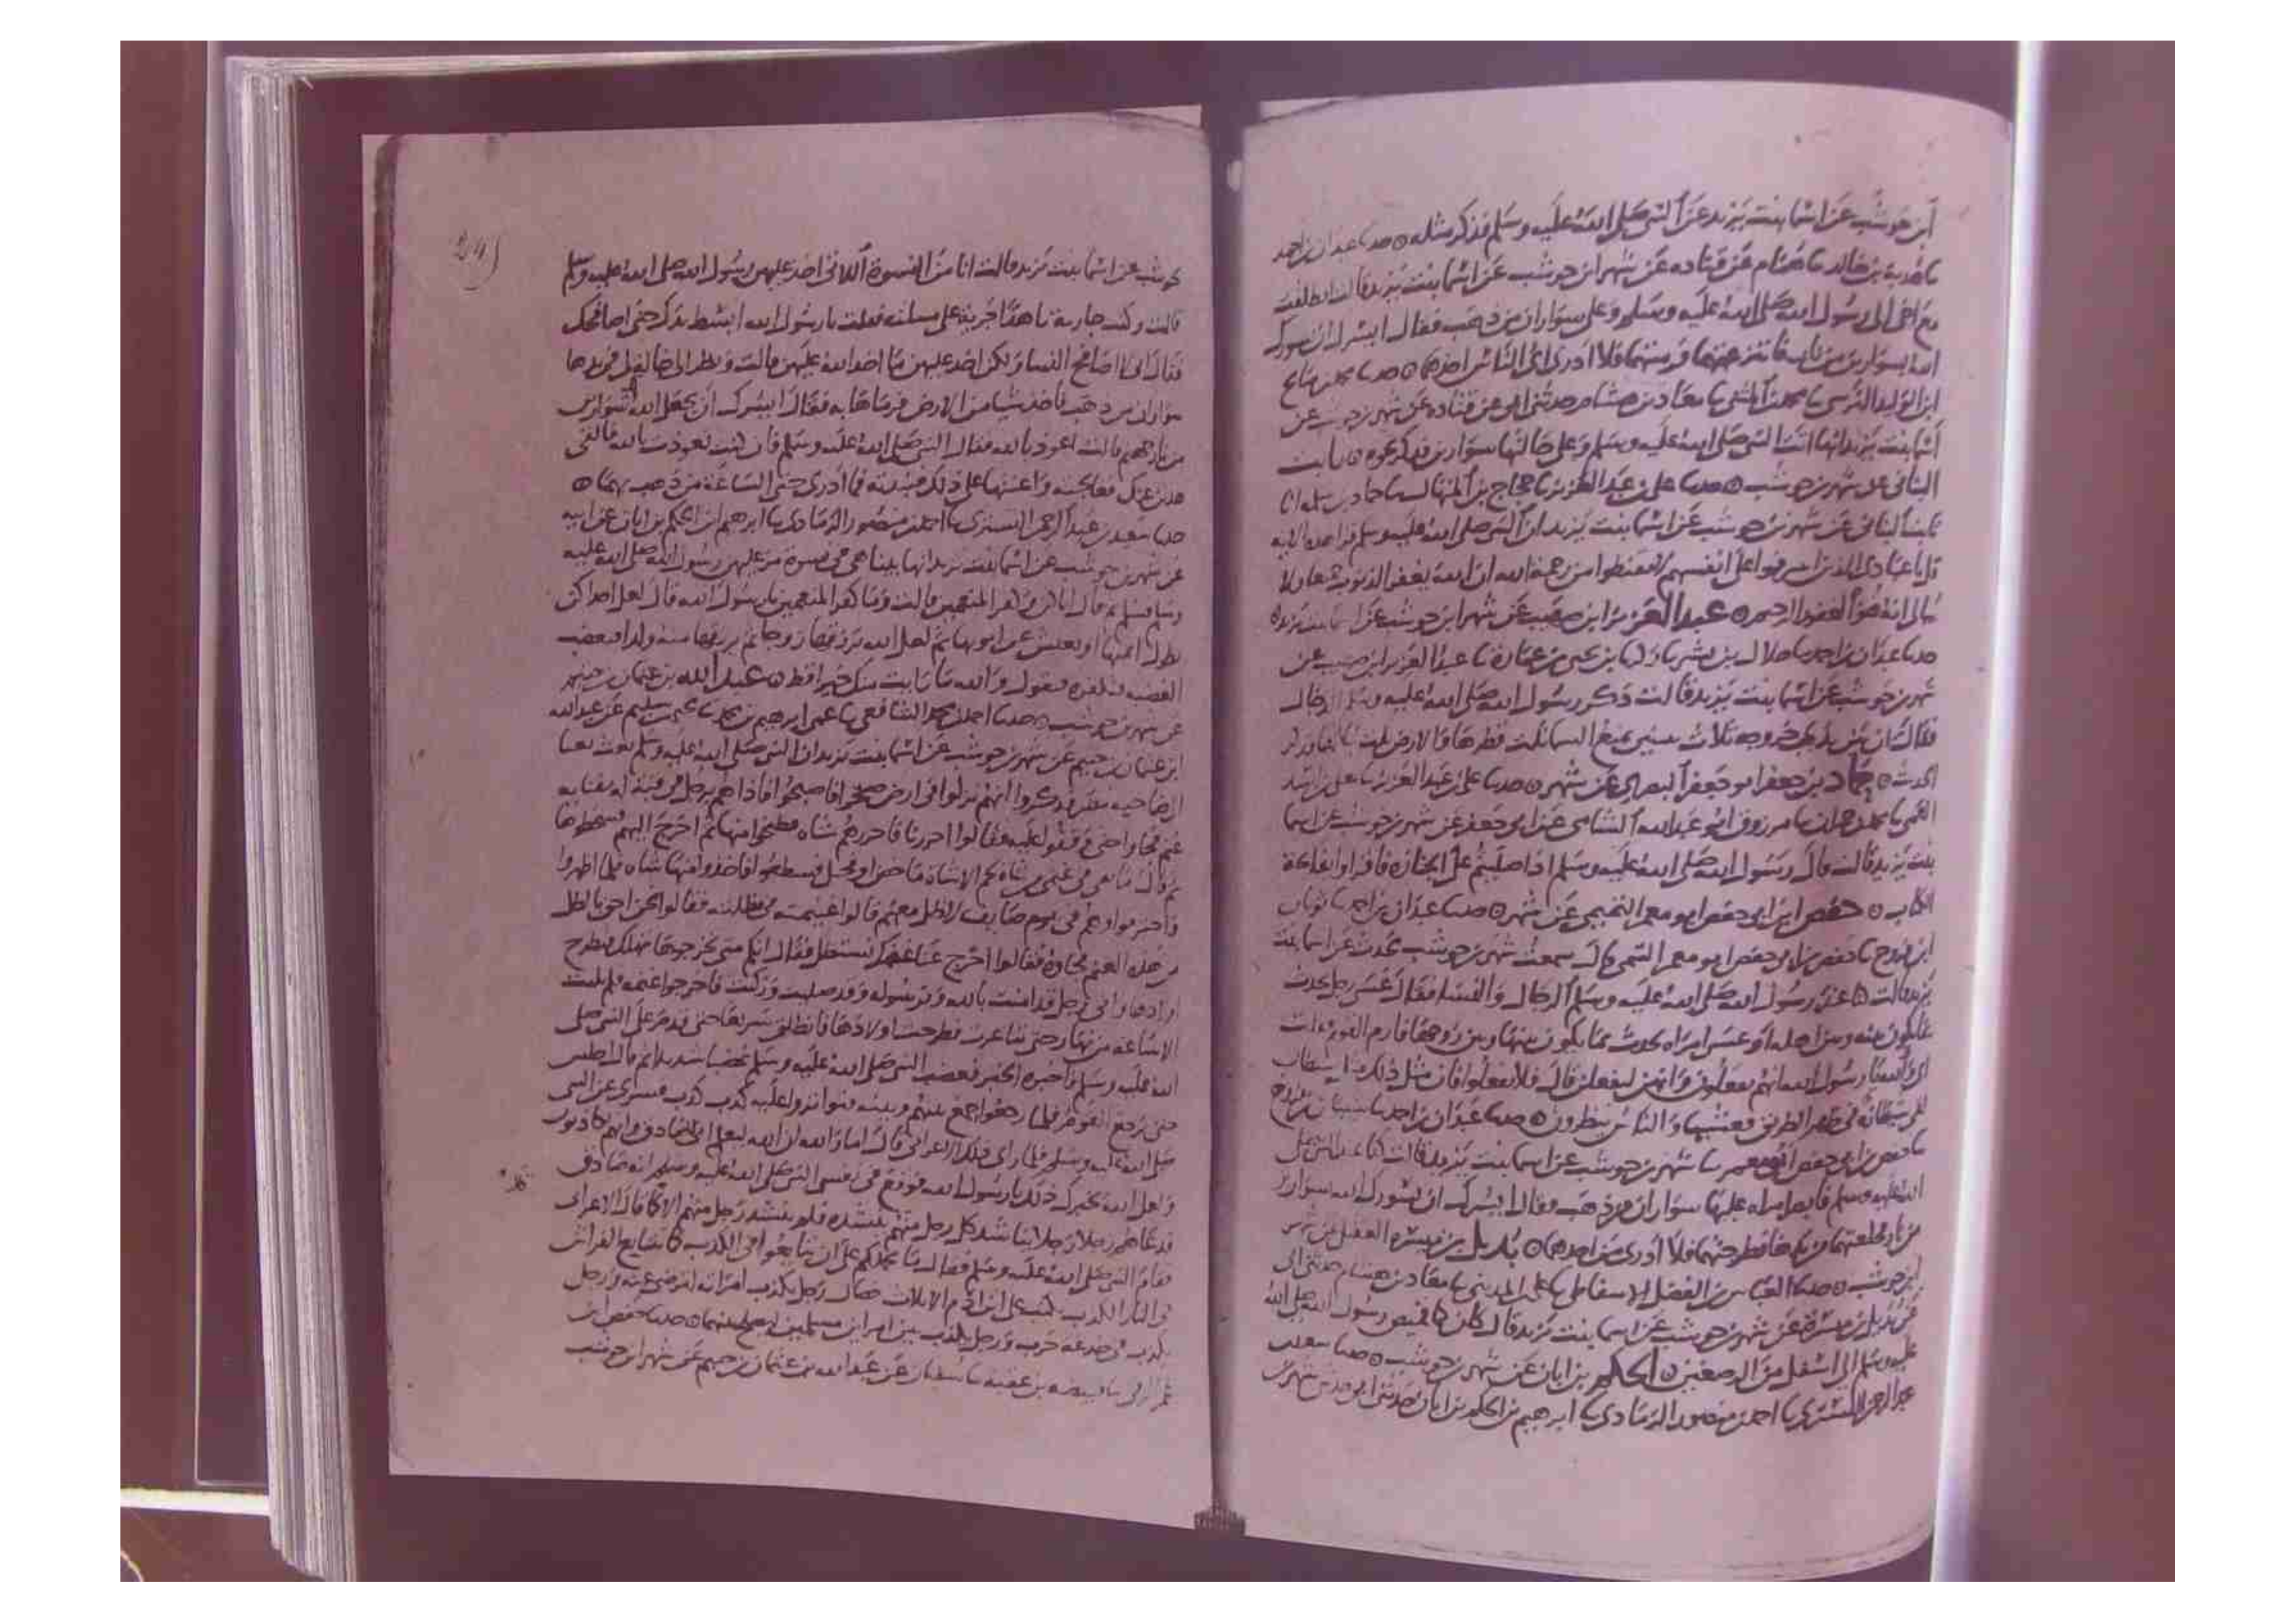 ابن حوشب عن اسما بنت يزيد عن النبي صلى الله عليه وسلم فذكر مثله ٥ حدثنا عبدان بن احمد
نا هدبة بن خالد نا همام عن قتاده عن شهر ابن حوشب عن اسما بنت يزيد قالت انطلقت
مع الى رسول الله صلى الله عليه وسلم وعلى سواران من ذهب فقال ايسرك ان يسورك
الله بسوارين من نار فانتزعتهما فرميتهما فلا ادرى اى الناس اخذهما ٥ حدثنا محمد بن صالح
ابن الوليد النرسى نا محمد بن المثنى نا معاذ بن هشام حدثنى ابى عن قتاده عن شهر بن حوشب عن
اسما بنت يزيد انها اتت النبي صلى الله عليه وسلم وعلى خالتها سوارين فذكر نحوه ٥ ثابت
البنانى عن شهر بن حوشب ٥ حدثنا على بن عبد العزيز نا حجاج بن المنهال نا حماد بن سلمه انا
ثابت البنانى عن شهر بن حوشب عن اسما بنت يزيد ان النبي صلى الله عليه وسلم قرا هذه الايه
قل يا عبادى الذين اسرفوا على انفسهم لا تقنطوا من رحمة الله ان الله يغفر الذنوب جميعا ولا
يبالى انه هو الغفور الرحيم ٥ عبد العزيز ابن صهيب عن شهر ابن حوشب عن اسما بنت يزيد ٥
حدثنا عبدان بن احمد نا هلال بن بشر نا بن يحيى بن عمارة نا عبد العزيز ابن صهيب عن
شهر بن حوشب عن اسما بنت يزيد قالت ذكر رسول الله صلى الله عليه وسلم الدجال
فقال ان بين يدى خروجه ثلاث سنين تمنع السما ثلث قطرها والارض ثلث نباتها فذكر
الحديث ٥ حماد بن جعفر ابو جعفر البصرى عن شهر ٥ حدثنا على بن عبد العزيز نا معلى بن اسد
العمى نا محمد بن حمران نا مرزوق ابو عبد الله الشامى عن ابى جعفر عن شهر بن حوشب عن اسما
بنت يزيد قالت قال رسول الله صلى الله عليه وسلم اذا صليتم على الجنازه فاقراوا بفاتحة
الكتاب ٥ حفص ابن ابى حفص ابو معمر التميمى عن شهر ٥ حدثنا عبدان بن احمد نا شيبان
ابن فروخ نا حفص بن ابى حفص ابو معمر التميمى قال سمعت شهر بن حوشب يحدث عن اسما بنت
يزيد قالت عند رسول الله صلى الله عليه وسلم الرجال والنسا فقال عسى رجل يحدث
بما يكون بينه وبين اهله او عسى امراه تحدث بما يكون بينها وبين زوجها فارم القوم فقلت
اى والله يا رسول الله انهم يفعلون وانهن ليفعلن قال فلا تفعلوا فان مثل ذلك مثل شيطان
لقى شيطانه فى ظهر الطريق فغشيها والناس ينظرون ٥ حدثنا عبدان بن احمد نا شيبان بن فروخ
نا حفص بن ابى حفص ابو معمر نا شهر بن حوشب عن اسما بنت يزيد قالت صلى
الله عليه وسلم امراه عليها سواران من ذهب فقال ايسرك ان يسورك الله سوارين
من نار فخلعتهما من يدها فطرحتهما فلا ادرى من اخذهما ٥ بديل بن ميسره العقيلى عن شهر
ابن حوشب ٥ حدثنا العباس بن الفضل الاسفاطى نا على المدينى نا معاذ بن هشام حدثنى ابى
عن بديل بن ميسرة عن شهر بن حوشب عن اسما بنت يزيد قال كان كم قميص رسول الله صلى الله
عليه وسلم الى اسفل من الرصغين ٥ الحكم بن ابان عن شهر بن حوشب ٥ حدثنا سعيد بن
عبد الرحمن التسترى نا احمد بن منصور الرمادى نا ابرهيم بن الحكم بن ابان حدثنى ابى عن شهر بن
حوشب عن اسما بنت يزيد قالت انا من النسوة اللاتى اخذ عليهن رسول الله صلى الله عليه وسلم
قالت وكنت جارية ناهدا جرية على مسالته فقلت يا رسول الله ابسط يدك حتى اصافحك
فقال انى لا اصافح النسا ولكن اخذ عليهن ما اخذ الله عليهن قالت ونظر الى خالة لى فى يدها
سواران من ذهب فاخذ شيا من الارض فرماها به فقال ايسرك ان يجعل الله سوارين
من نار جهنم قالت اعوذ بالله فقال النبي صلى الله عليه وسلم فان كنت تعوذت بالله فالقى
هذين عنك فعالجته واعنتها على ذلك فنبذته فما ادرى حتى الساعة من ذهب بهما ٥
حدثنا سعيد بن عبد الرحمن التسترى نا احمد بن منصور الرمادى نا ابرهيم ابن الحكم بن ابان عن ابيه
عن شهر بن حوشب عن اسما بنت يزيد انها بينا هى فى نسوة مر عليهن رسول الله صلى الله عليه
وسلم فسلم ثم قال اياكن وكفر المنعمين قالت وما كفر المنعمين يا رسول الله قال لعل احداكن
تطول ايمتها او تعنس عند ابويها ثم لعل الله يرزقها زوجا ثم يرزقها منه ولدا فتغضب
الغضبه فتكفره فتقول والله ما رايت منك خيرا قط ٥ عبد الله بن عثمان بن خثيم
عن شهر بن حوشب ٥ حدثنا احمد بن محمد الشافعى نا عمى ابرهيم بن محمد نا يحيى بن سليم عن عبد الله
ابن عثمان بن خثيم عن شهر بن حوشب عن اسما بنت يزيد ان النبي صلى الله عليه وسلم بعث بعثا
الى ضاحيه مضر فذكروا انهم نزلوا فى ارض صحرا فاصبحوا فاذا هم برجل فى قبة له بفنايه
غنم فجاوا حتى وقفوا عليه فقالوا اجزرنا فاجزرهم شاه فطبخوا منها ثم اخرج اليهم فسحطوها
ثم قال ما بقى فى غنمى من شاة لحم الا شاة ماخض او فحل فسطوا فاخذوا منها شاه فلما اظهروا
واحترقوا وهم فى يوم صايف لا ظل معهم قالوا غنيمته فى مظلته فقالوا نحن احق بالظل
من هذه الغنم فجاوه فقالوا اخرج عنا غنمك نستظل فقال انكم متى تخرجوها تهلك فتطرح
اولادها وانى رجل قد امنت بالله وبرسوله وقد صليت وزكيت فاخرجوا غنمه فلم يلبث
الا ساعه من نهار حتى تناغرت فطرحت اولادها فانطلق سريعا حتى قدم على النبي صلى
الله عليه وسلم فاخبره الخبر فغضب النبي صلى الله عليه وسلم غضبا شديدا ثم قال اجلس
حتى يرجع القوم فلما رجعوا جمع بينهم وبينه فتواتروا عليه كذب كذب فسرى عن النبي
صلى الله عليه وسلم فلما راى ذلك الاعرابى قال اما والله ان الله ليعلم انى لصادق وانهم كاذبون
ولعل الله يخبرك ذلك يا رسول الله فوقع فى نفس النبي صلى الله عليه وسلم انه صادق
فدعاهم رجلا رجلا يناشد كل رجل منهم بنشده فلم ينشد رجل منهم الا كما قال الاعرابى
فقام النبي صلى الله عليه وسلم فقال ما يحملكم على ان تتايعوا فى الكذب كما يتايع الفراش
فى النار الكذب يكتب على ابن ادم الا ثلاث خصال رجل يكذب امراته لترضى عنه ورجل
يكذب فى خدعه حرب ورجل يكذب بين امراين مسلمين ليصلح بينهما ٥ حدثنا حفص ابن
عمر الرقى نا قبيصه بن عقبه نا سفيان عن عبد الله بن عثمان بن خثيم عن شهر ابن حوشب